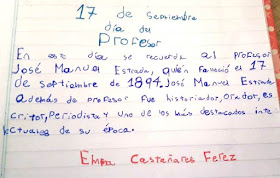 17 de Sepriembre
día del
Profesor
En este día se recuerda al profesor
José Manuel Estrada, quién falleció el 17
de septiembre de 1894. José Manuel Estrada
además de profesor fue historiador, Orador, es
critor, Periodista y uno de los más destacados inte
lectuales de su época.
Emma Castañares Ferez